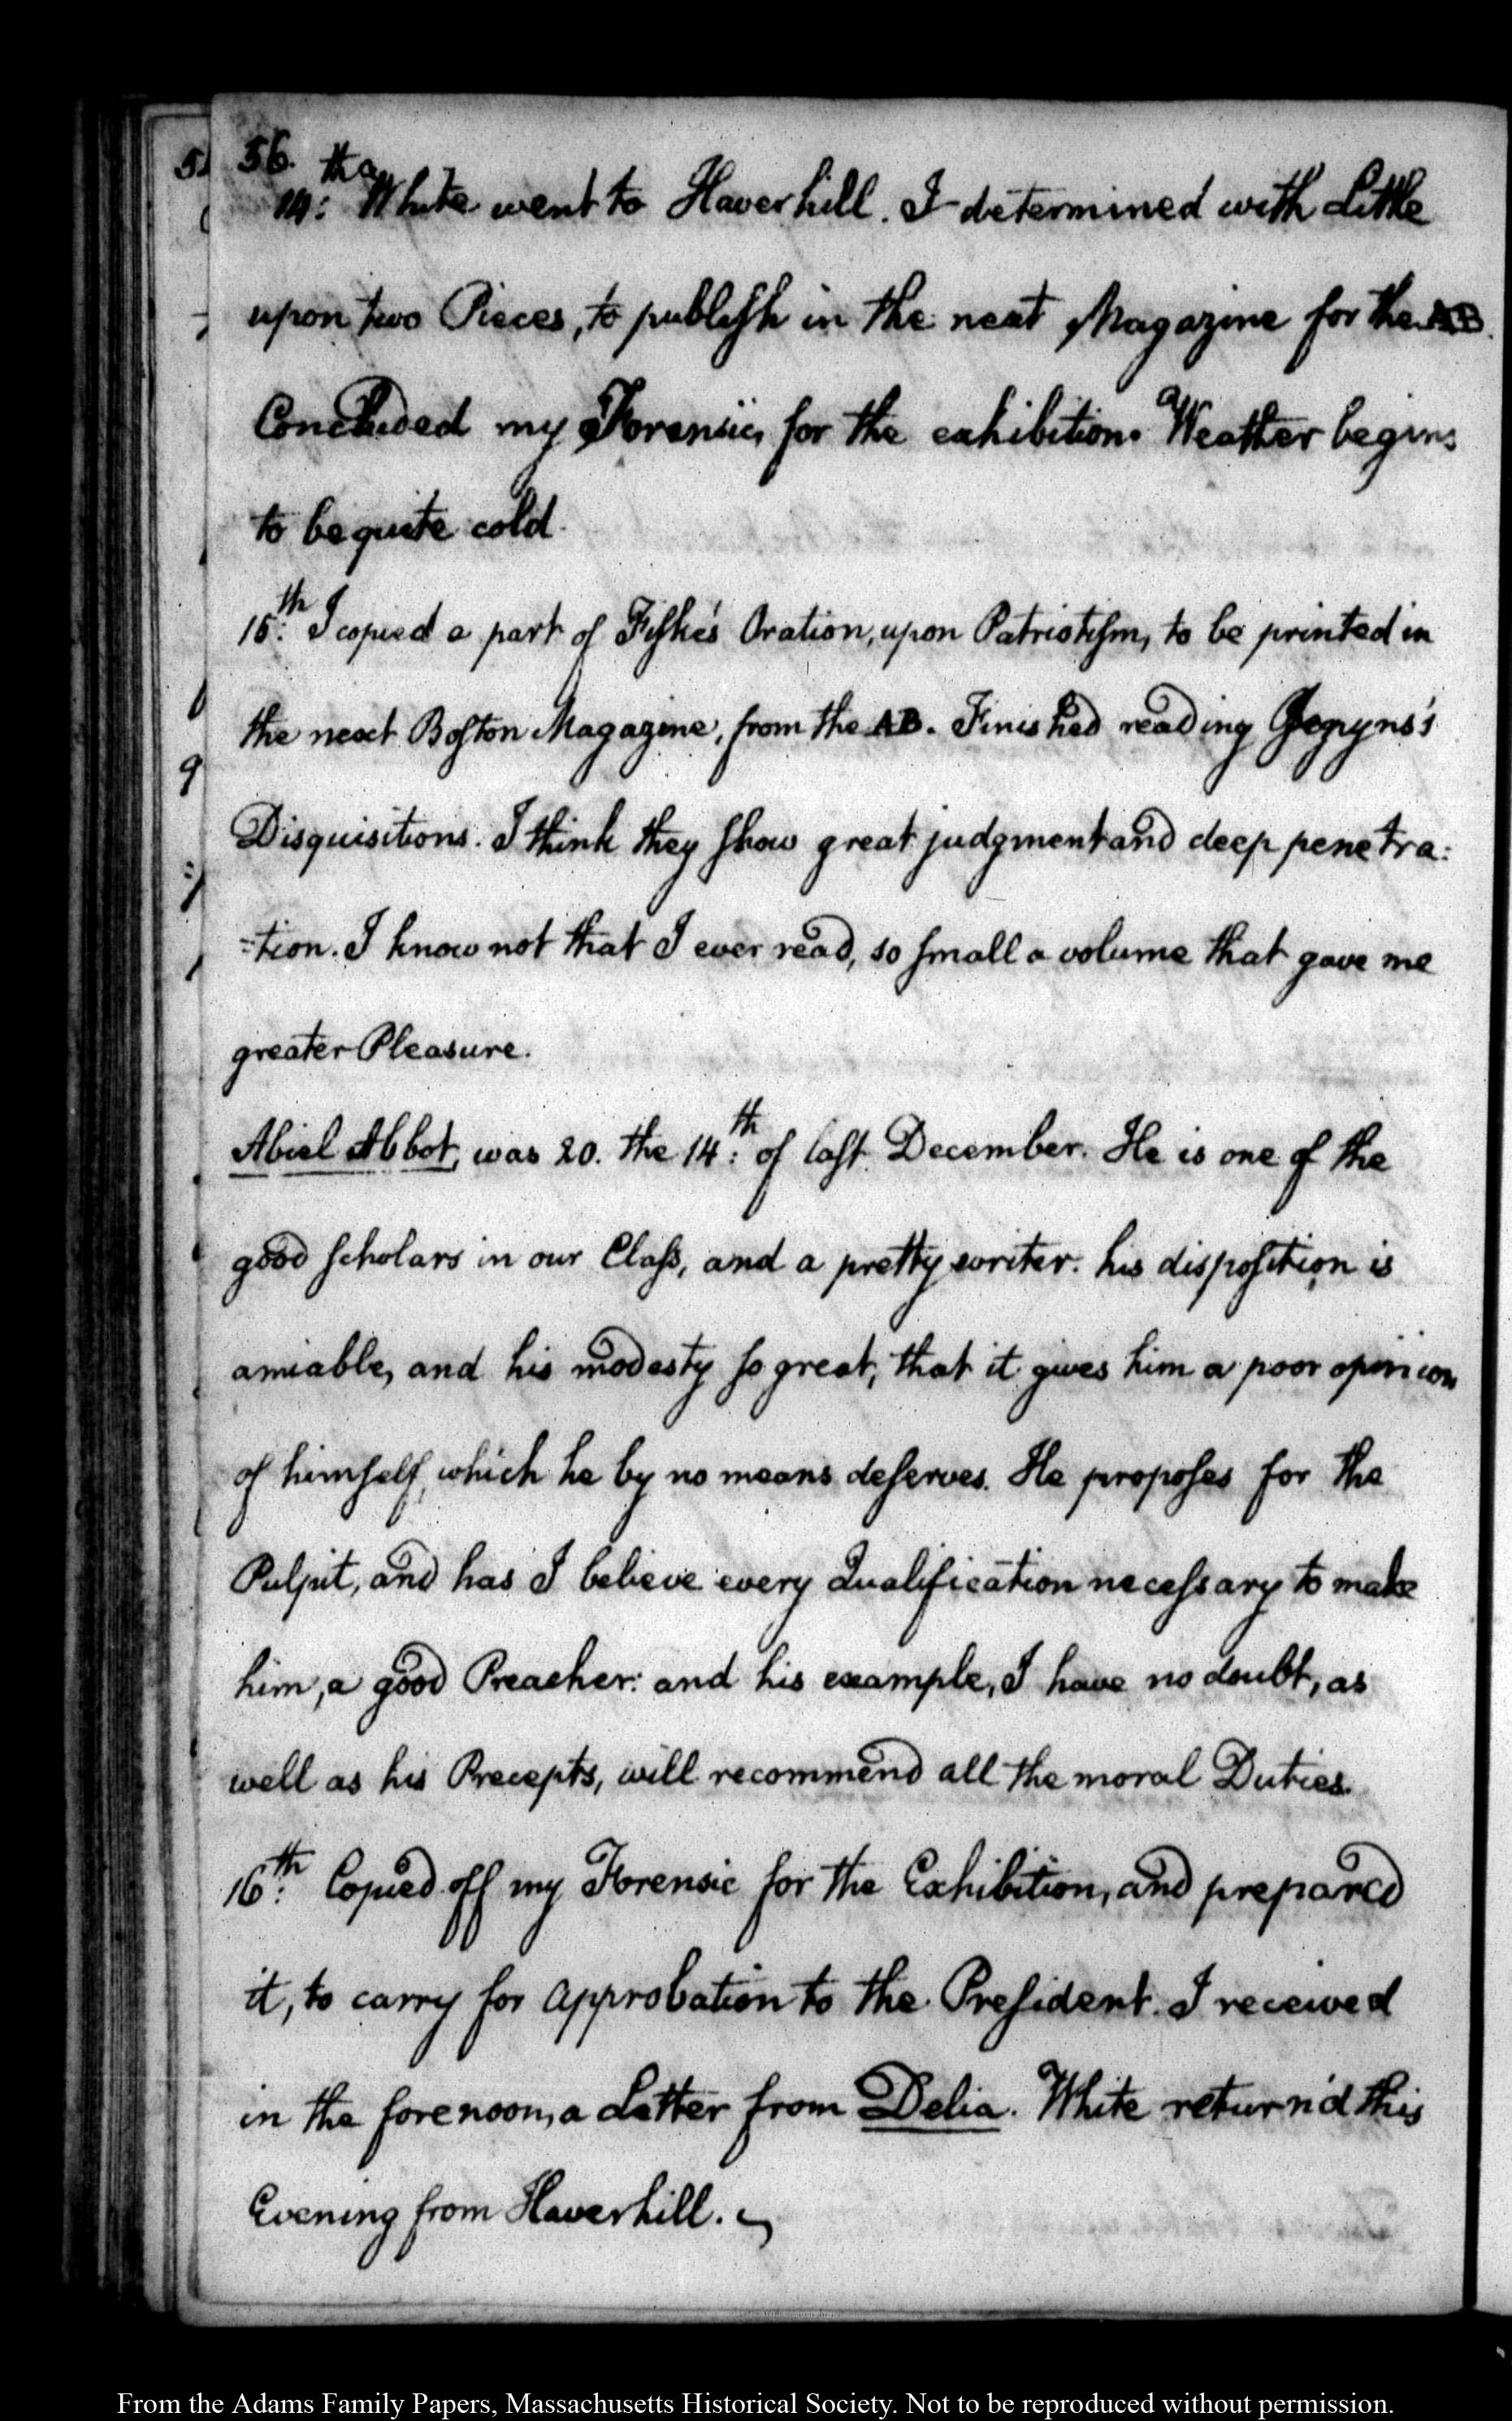 56.
14:th White went to Haverhill. I determined with Little
upon two Pieces, to publish in the next Magazine for the AB.
Concluded my Forensic, for the exhibition. Weather begins
to be quite cold.
15:th I copied a part of Fiske's Oration, upon Patriotism, to be printed in
the next Boston Magazine, from the AB. Finished reading
Disquisitions. I think they show great judgment and deep penetra:
=tion. I know not that I ever read, so small a volume that gave me
greater Pleasure.
Abiel Abbot, was 20. the 14:th of last December. He is one of the
good scholars in our Class, and a pretty writer: his disposition is
amiable, and his modesty so great, that it gives him a poor opinion
of himself, which he by no means deserves. He proposes for the
Pulpit, and has I believe every Qualification necessary to make
him, a good Preacher: and his example, I have no doubt, as
well as his Precepts, will recommend all the moral Duties.
16:th Copied off my Forensic for the Exhibition, and prepared
it, to carry for approbation to the President. I received
in the forenoon, a Letter from Delia. White return'd this
Evening from Haverhill.
From the Adams Family Papers, Massachusetts Historical Society. Not to be reproduced without permission.